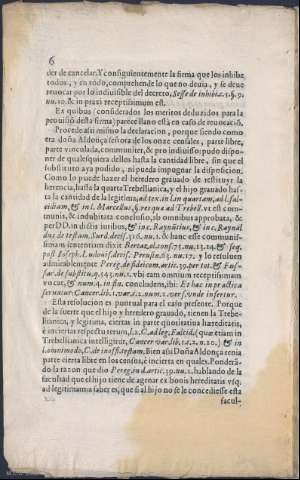 6
der de cancelar. Y consiguientemente la firma que los inhibe
todos, y en todo, comprehende lo que no deuia, y se deue
reuocar por lo indiuisible del decreto, Sesse de inhibit. c. 5. §. 9.
nu. 10. & in praxi receptissimum est.
Ex quibus (considerados los meritos deduzidos para la
prouisiō desta firma) parece llano estâ en caso de reuocaciō.
Procede assi mismo la declaracion, porque siendo como
era doña Aldonça señora de los onze censales, parte libre,
parte vinculada, comun iter, & pro indiuiso: pudo dispo-
ner de qualesquiera dellos hasta la cantidad libre, sin que el
substituto aya podido, ni pueda impugnar la disposicion.
Como lo puede hazer el heredero grauado de restituyr la
herencia, hasta la quarta Trebellianica, y el hijo grauado has-
ta la cantidad de la legitima, ad tex. in l. in quartam, ad l. fal-
cidiam, & in l. Marcellus, §. res quæ ad Trebell. vt est commu-
nis, & indubitata conclusio, ab omnibus approbata, & c
per DD. in dictis iuribus, & in c. Raynutius, & in c. Raynal
dus de testam. Surd. decis. 316. nu. 1. & hanc esse communis-
simam sententiam dixit
post Joseph. Ludouis. decis. Perusin. 65. nu. 17. y lo resueluen
admirablemente Pereg. de fideicom. artic. 39. per tot. & Fus-
sar. de substitu. q. 545. nu. 1. vbi eam omnium receptissimam
vocat, & num. 4. in fin. concludens, ibi: Et hac in practica
seruatur. Cancer. lib. 1. var. c. 2. num. 2. vers. vnde infertur.
Esta resolucion es puntual para el caso presente. Porque
de la suerte que el hijo y heredero grauado, tienen la Trebe-
llianica, y legitima, cierta in parte quotitatiua hæreditatis,
è incierta respectu rerum, l. 2. C. ad leg. Falcid. (quæ etiam in
Trebellianica intelligitur, Cancer var. lib. 1. c. 2. n. 20.) & in
l. quoniamodo, C. de inoff. testam. Bien assi Doña Aldonça tenia
parte cierta libre en los censos, è incierta en quales. Ponderā-
do la razon que dio Pereg. in d. artic. 39. nu. 2. hablando de la
facultad que el hijo tiene de agenar ex bonis hereditatis vsq.
ad legitimam à saber es, que si al hijo no se le concediesse esta
facul-